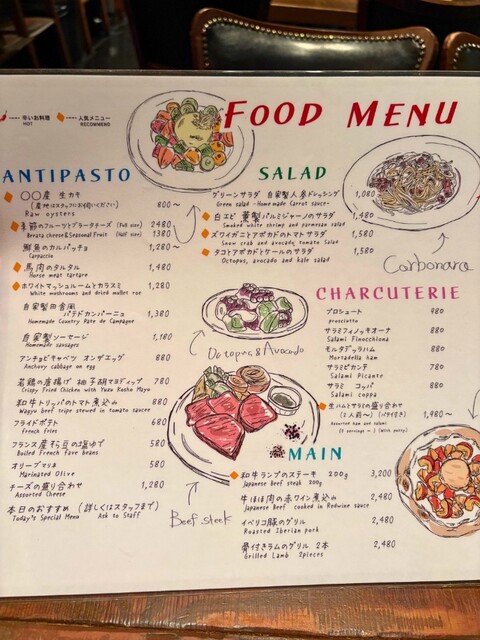 辛いお料理
HOT
人気メニュー
RECOMMEND
FOOD MENU
ANTIPASTO
○○産 生カキ
(産地はスタッフにお伺いください)
Raw oysters
800〜
季節のフルーツとブラータチーズ (Full size) 2480
Burata cheese&Seasonal Fruit (Half size) 1380
鮮魚のカルパッチョ 1,280〜
Carpaccio
馬肉のタルタル 1,480
Horse meat tartare
ホワイトマッシュルームとカラスミ 1,280
White mushrooms and dried mullet roe
自家製田舎風
パテドカンパーニュ 1,380
Homemade Country Pate de Campagne
自家製ソーセージ 1,180
Homemade sausages
アンチョビキャベツ オンザエッグ 880
Anchovy cabbage on egg
若鶏の唐揚げ 柚子胡椒マヨディップ 780
Crispy Fried Chicken with Yuzu Kosho Mayo
和牛トリッパのトマト煮込み 880
Wagyu beef tripe stewed in tomato sauce
フライドポテト 680
French fries
フランス産そら豆の塩ゆで 580
Boiled French fave beans
オリーブマリネ 580
Marinated Olive
チーズの盛り合わせ 1,280
Assorted Cheese
本日のおすすめ (詳しくはスタッフまで)
Today's Special Menu Ask to Staff
SALAD
グリーンサラダ 自家製人参ドレッシング 1,080
Green salad -Home made Carrot sauce-
白エビ 薫製パルミジャーノのサラダ 1,480
Smoked white shrimp and parmesan salad
ズワイガニとアボカドのトマトサラダ 1,580
Snow crab and avocado, tomato Salad
タコとアボカドとケールのサラダ 1,580
Octopus, avocado and kale salad
Carbonara
Octopas&Avocado
CHARCUTERIE
プロシュート 980
prosciutto
サラミフィノッキオーナ 880
Salami Finocchiona
モルタデッラハム 880
Mortadella ham
サラミピカンテ 780
Salami Picante
サラミ コッパ 880
Salami coppa
生ハムとサラミの盛り合わせ
(2人前〜) (パテ付き) 1,980〜
Assorted ham and salami
(2 servings 〜) (With patty)
MAIN
和牛ランプのステーキ 200g 3,200
Japanese Beef steak 200g
牛ほほ肉の赤ワイン煮込み 2,480
Japanese Beef cooked in Redwine sauce
イベリコ豚のグリル 2,480
Roasted Iberian pork
骨付きラムのグリル 2本 2,480
Grilled Lamb 2pieces
Beef steek